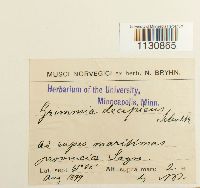 1130865
MUSCI NORVEGICI ex herb. N. BRYHN.
Herbarium of the University,
Minneapolis, Minn.
Grimmia decipiens
Ad rupes maritimas
provinciae
Lat. sept. Alt. supra mare
Aug. 1899